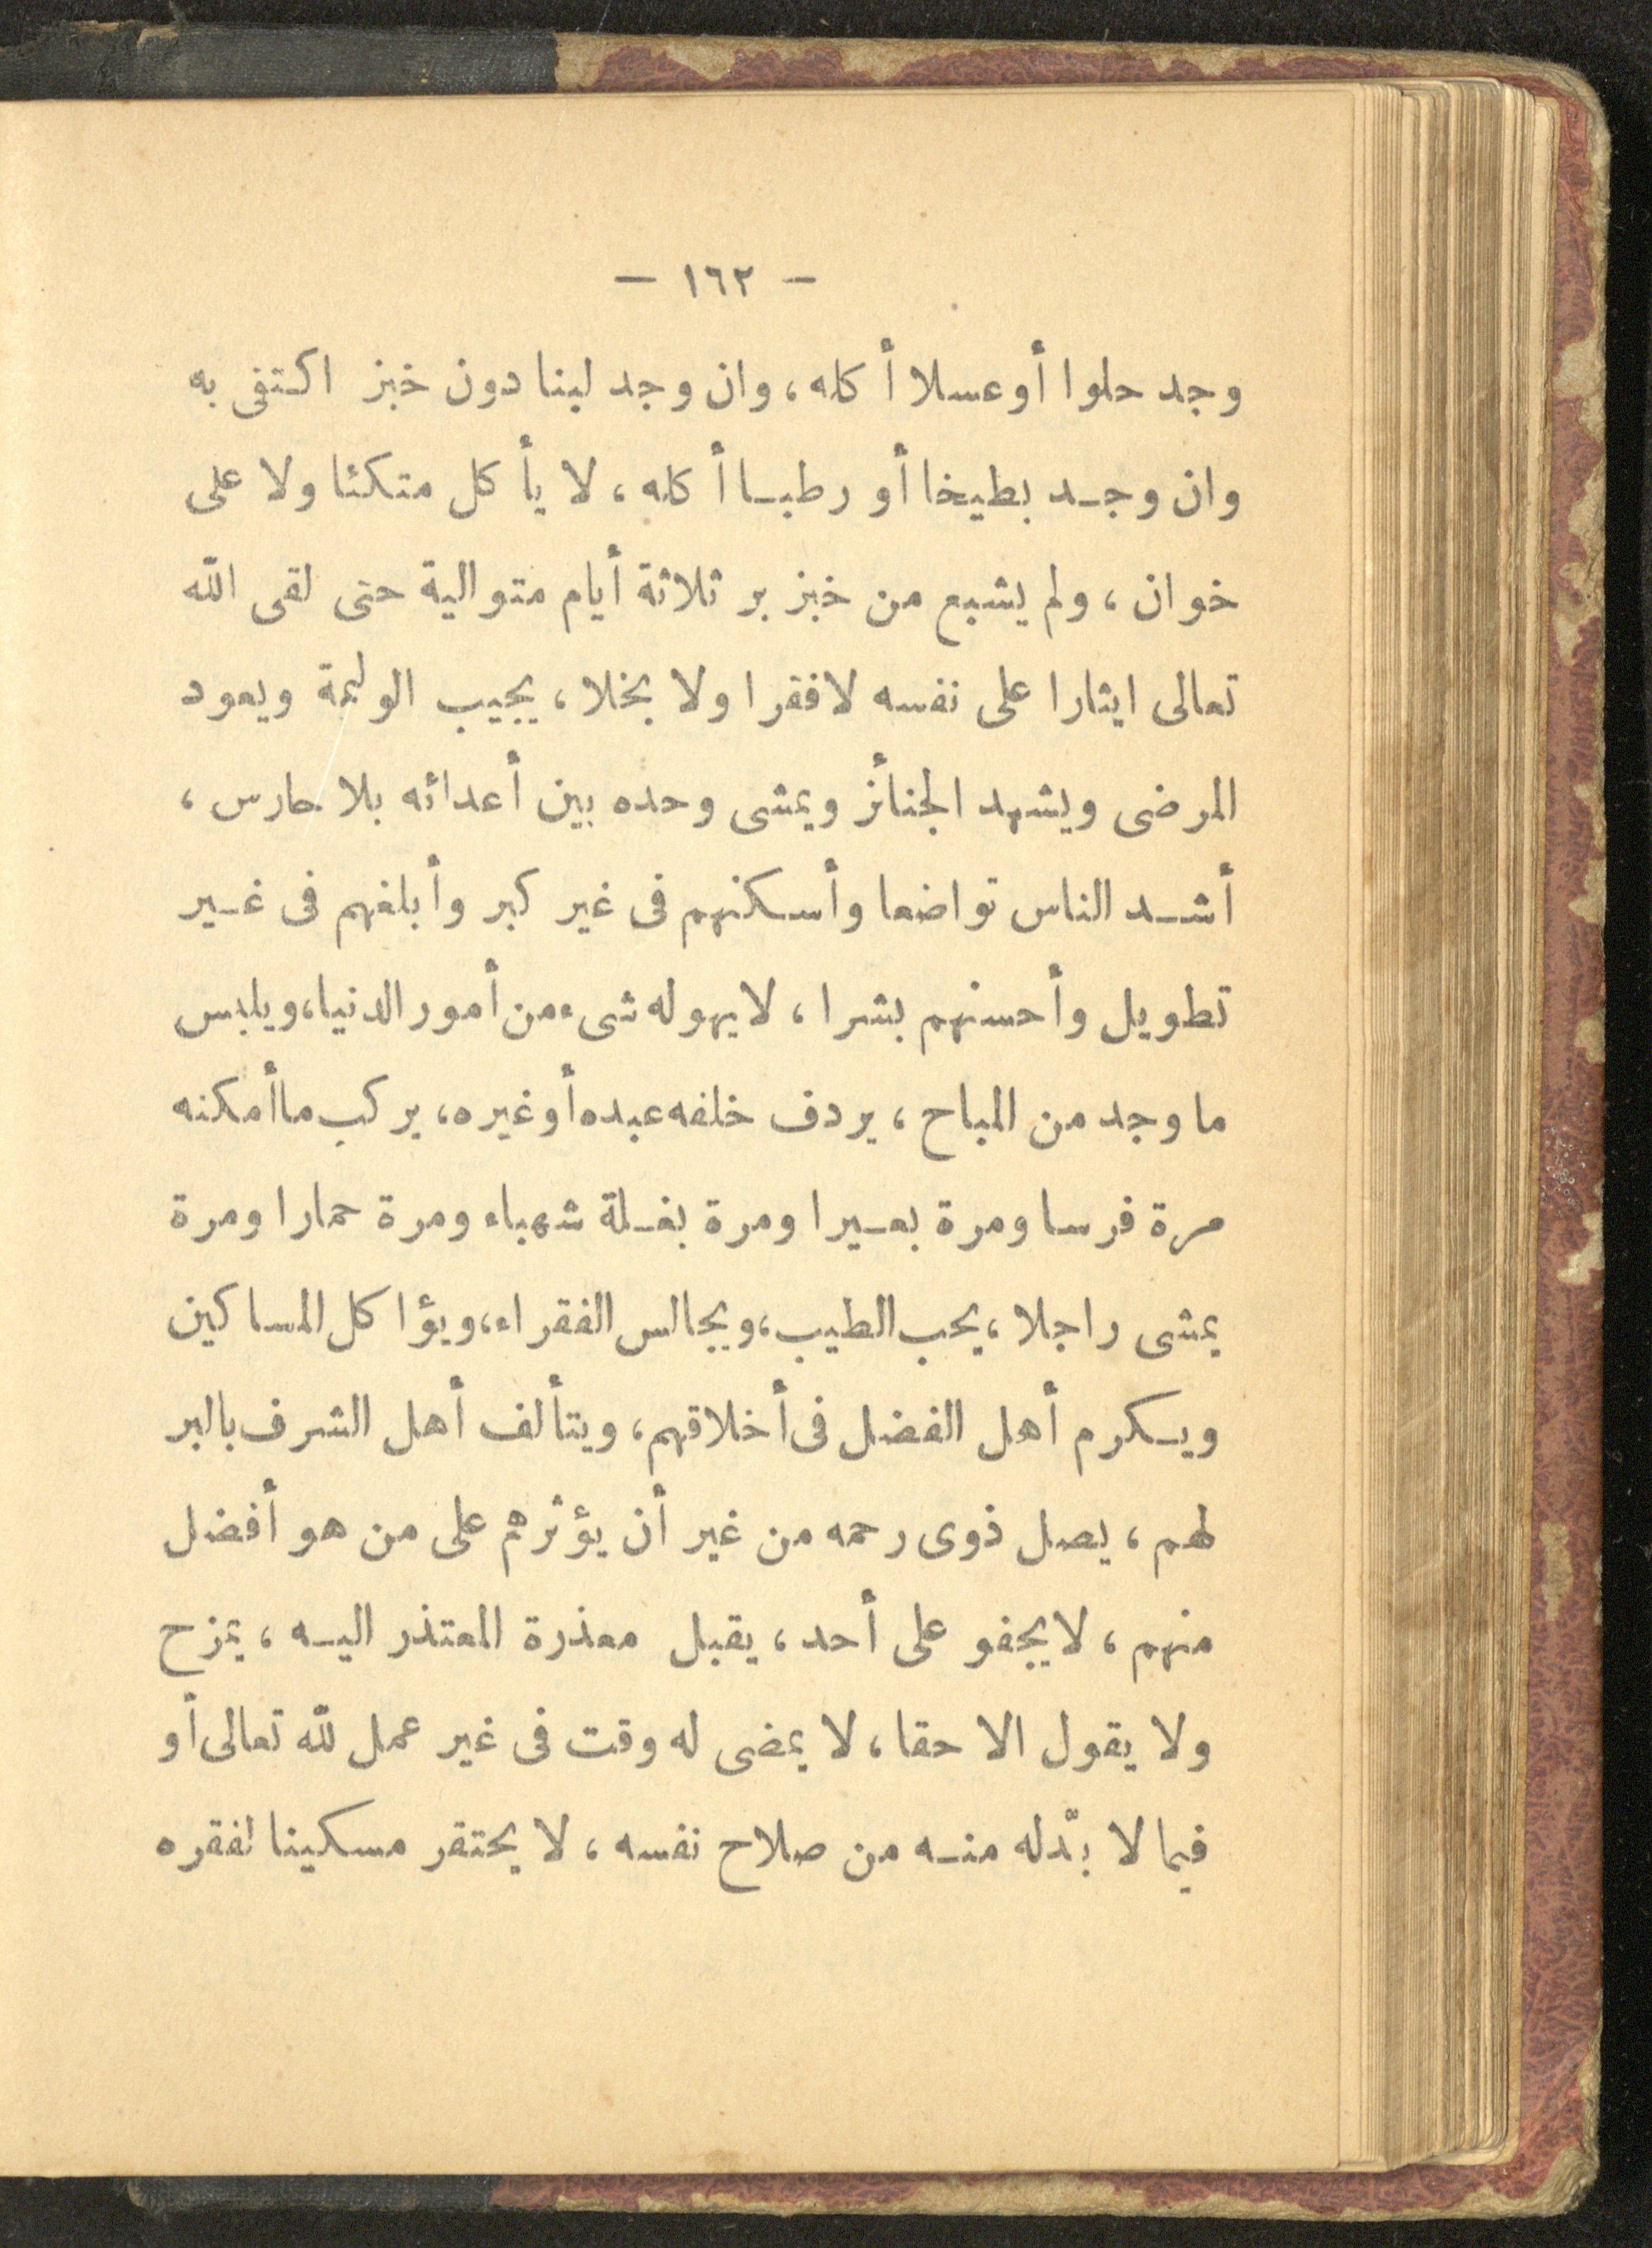 — ١٦٢ —
وجد حلوا أو عسلا أكله، وان وجد لبنا دون خبز اكتفى به
وان وجد بطيخا أو رطبا أكله، لا يأكل متكئا ولا على
خوان، ولم يشبع من خبز بر ثلاثة أيام متوالية حتى لقى الله
تعالى ايثارا على نفسه لا فقرا ولا بخلا، يجيب الوليمة ويعود
المرضى ويشهد الجنائز ويمشى وحده بين أعدائه بلا حارس،
أشد الناس تواضعا وأسكنهم فى غير كبر وأبلغهم فى غير
تطويل وأحسنهم بشرا، لا يهوله شىء من أمور الدنيا، ويلبس
ما وجد من المباح، يردف خلفه عبده أو غيره، يركب ما أمكنه
مرة فرسا ومرة بعيرا ومرة بغلة شهباء ومرة حمارا ومرة
يمشى راجلا، يحب الطيب، ويجالس الفقراء، ويؤاكل المساكين
ويكرم أهل الفضل فى أخلاقهم، ويتألف أهل الشرف بالبر
لهم، يصل ذوى رحمه من غير أن يؤثرهم على من هو أفضل
منهم، لا يجفو على أحد، يقبل معذرة المعتذر اليه، يمزح
ولا يقول الا حقا، لا يمضى له وقت فى غير عمل لله تعالى أو
فيما لا بدّ له منه من صلاح نفسه، لا يحتقر مسكينا لفقره